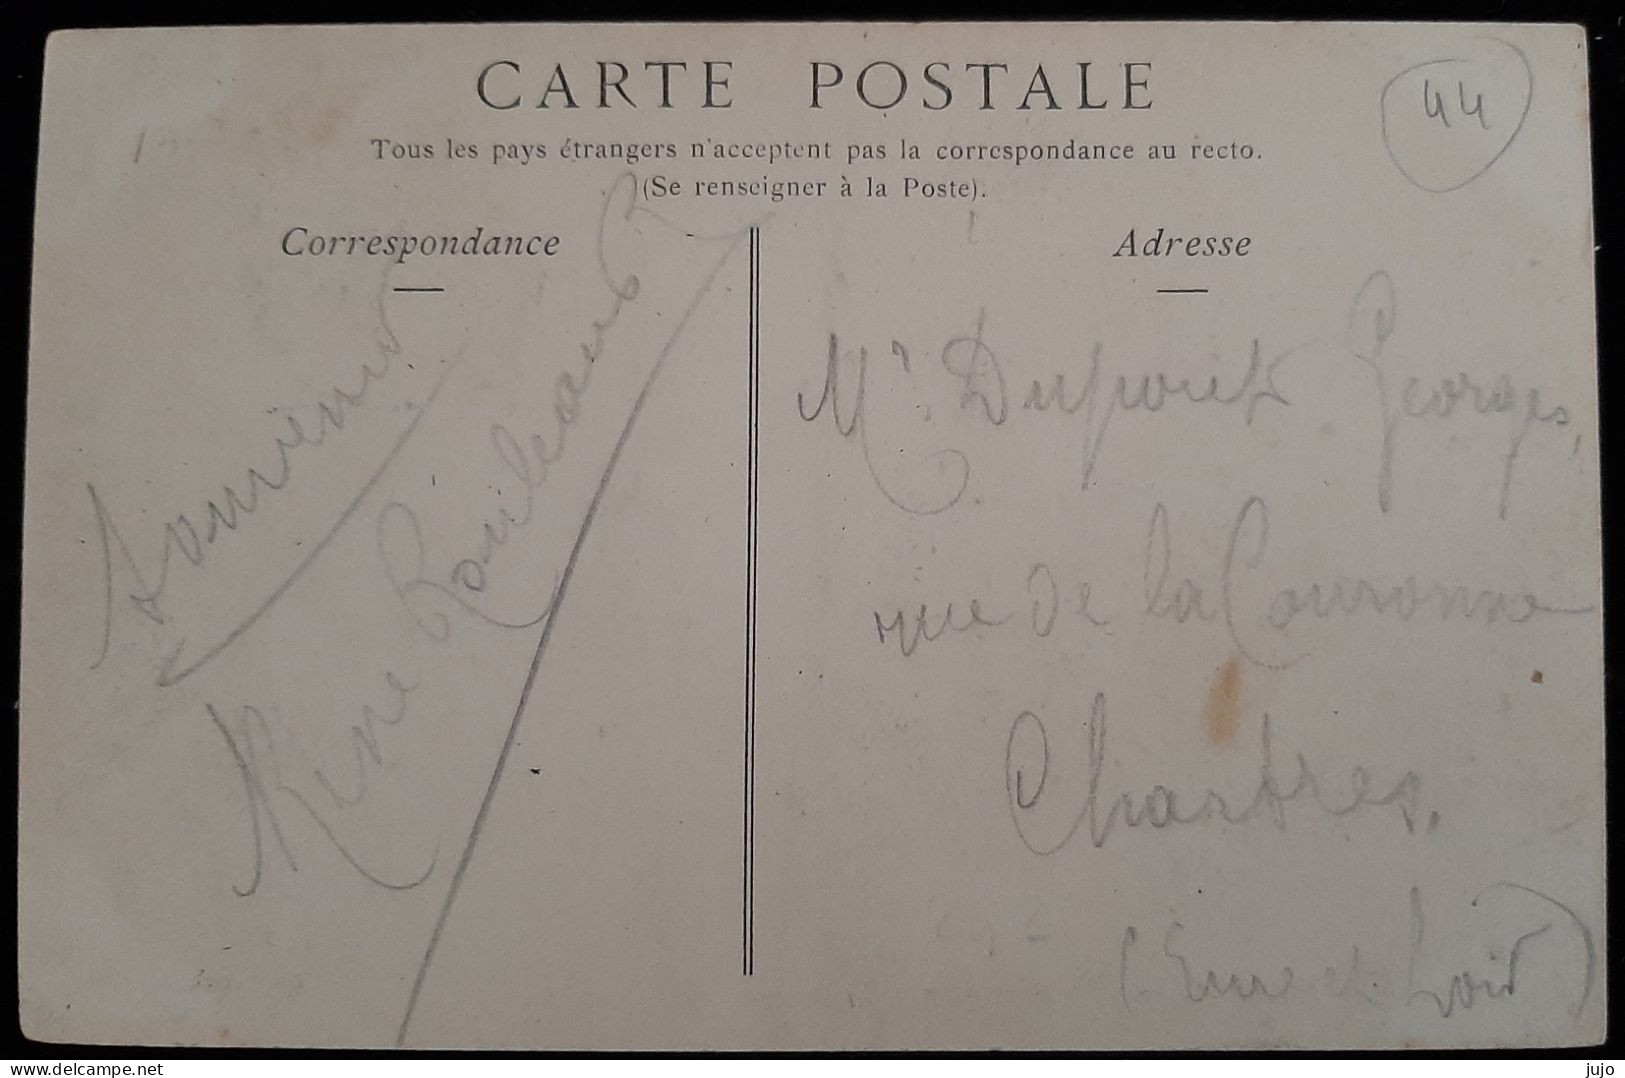 CARTE POSTALE
44
Tous les pays étrangers n'acceptent pas la correspondance au recto.
(Se renseigner à la Poste).
Correspondance
Souvenir
René
Adresse
Mr Georges,
rue de la Couronne
Chartres.
(Eure et Loir)
delcampe.net
jujo